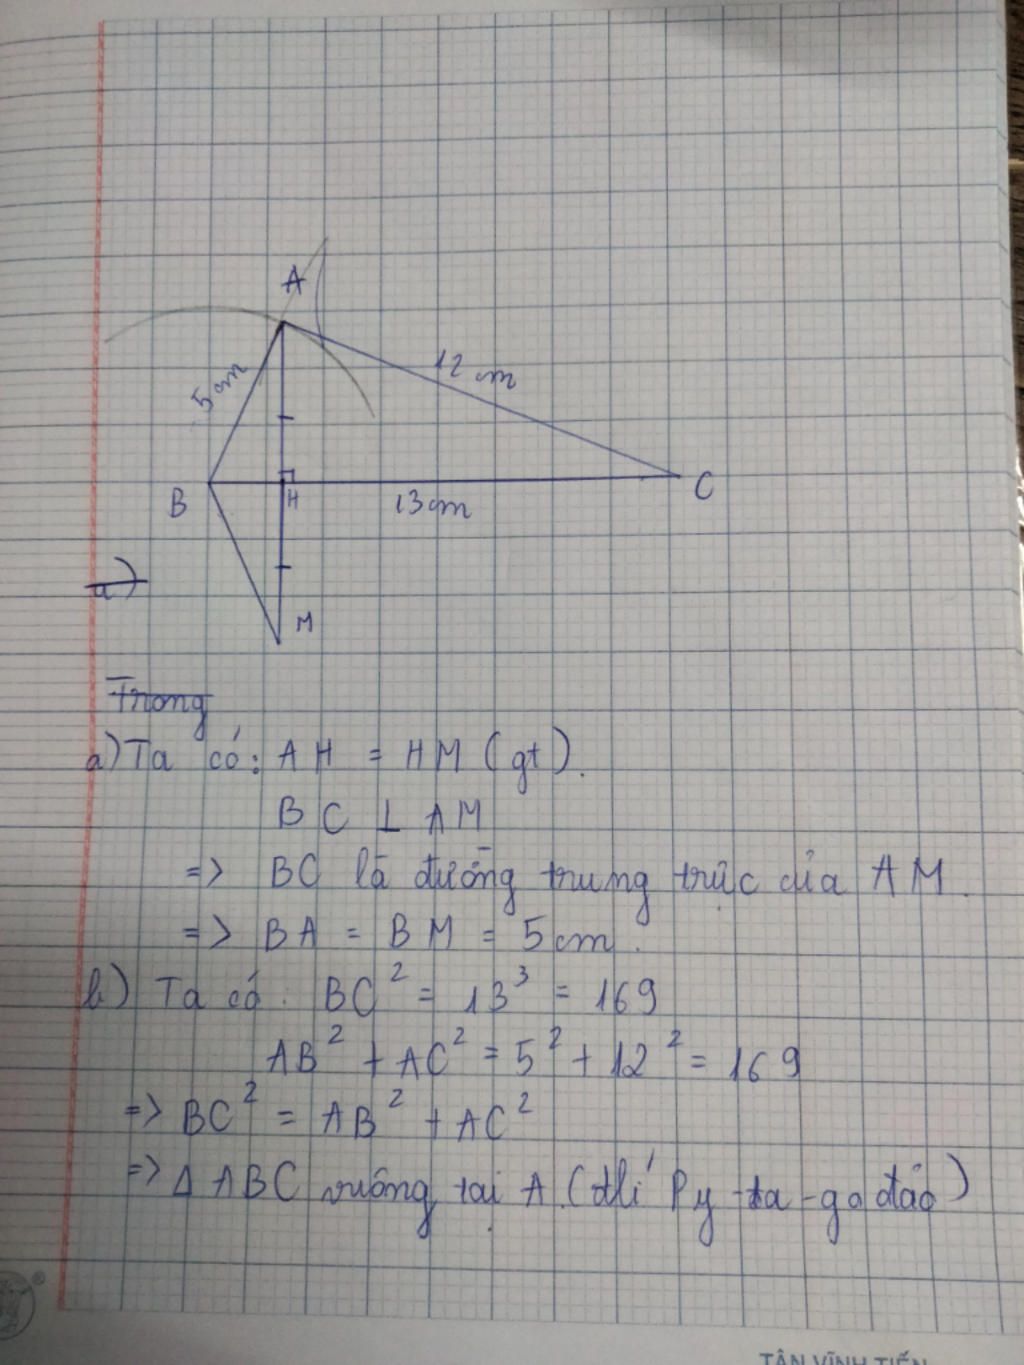 A
5 cm
12 cm
B
H
C
13 cm
a)
M
Trong
a) Ta có: AH = HM (gt).
BC ⊥ AM
=> BC là đường trung trực của AM.
=> BA = BM = 5 cm.
b) Ta có: BC² = 13³ = 169
AB² + AC² = 5² + 12² = 169
=> BC² = AB² + AC²
=> Δ ABC vuông tại A (đlí Py-ta-go đảo)
TÂN VĨNH TIẾN